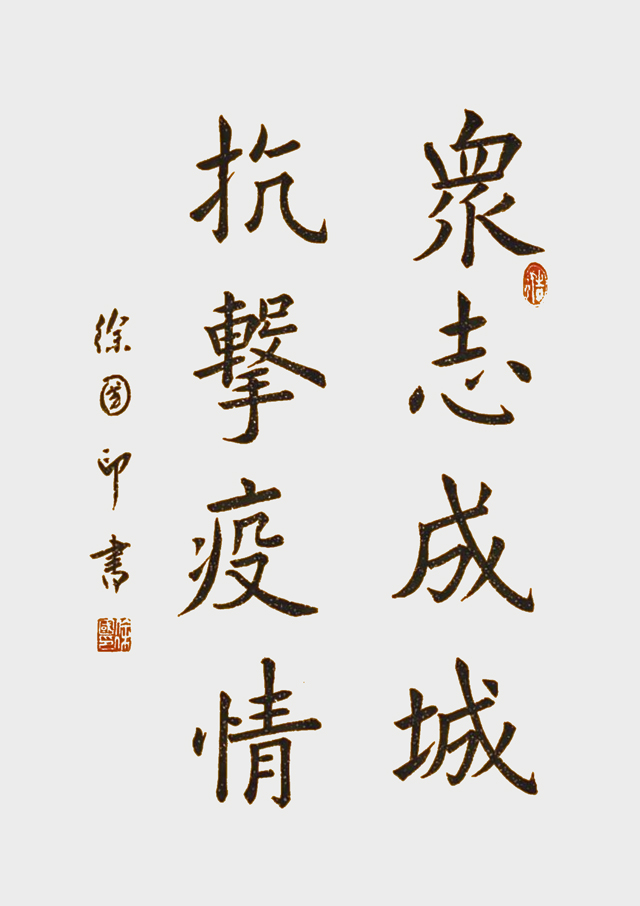 衆志成城
抗擊疫情
徐國印書